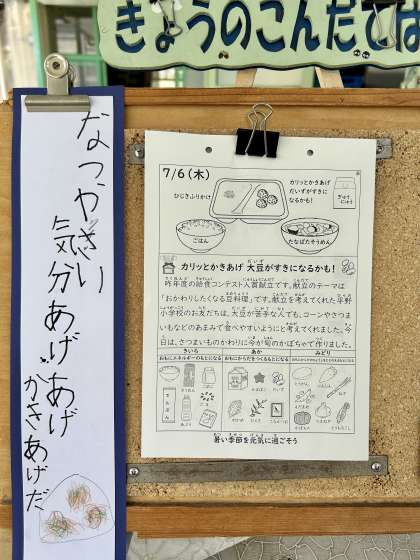 きょうのこんだては
なつかざい
気分あげあげ
かきあげだ
7/6(木)
カリッとかきあげ
だいずがすきに
なるかも!
ぎゅうにゅう
ひじきふりかけ
ごはん
たなばたそうめん
カリッとかきあげ 大豆がすきになるかも!
昨年度の給食コンテスト入賞献立です。献立のテーマは
「おかわりしたくなる豆料理」です。献立を考えてくれた平野
小学校のお友だちは、大豆が苦手な人でも、コーンやさつま
いもなどのあまみで食べやすいようにと考えてくれました。今
日は、さつまいものかわりに今が旬のかぼちゃで作りました。
きいろ
あか
みどり
おもにエネルギーのもとになる
おもにからだをつくるもとになる
暑い季節を元気に過ごそう